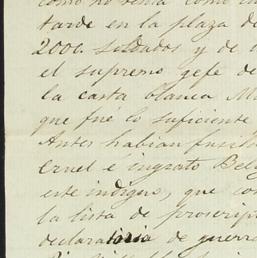 como no
tarde en la plaza de
2000 soldados y de
el supremo gefe de
la carta blanca
que fué lo suficiente
Antes habian
cruel é ingrato
este indígena, que con
la lista de proscrip
declaratoria de guerra